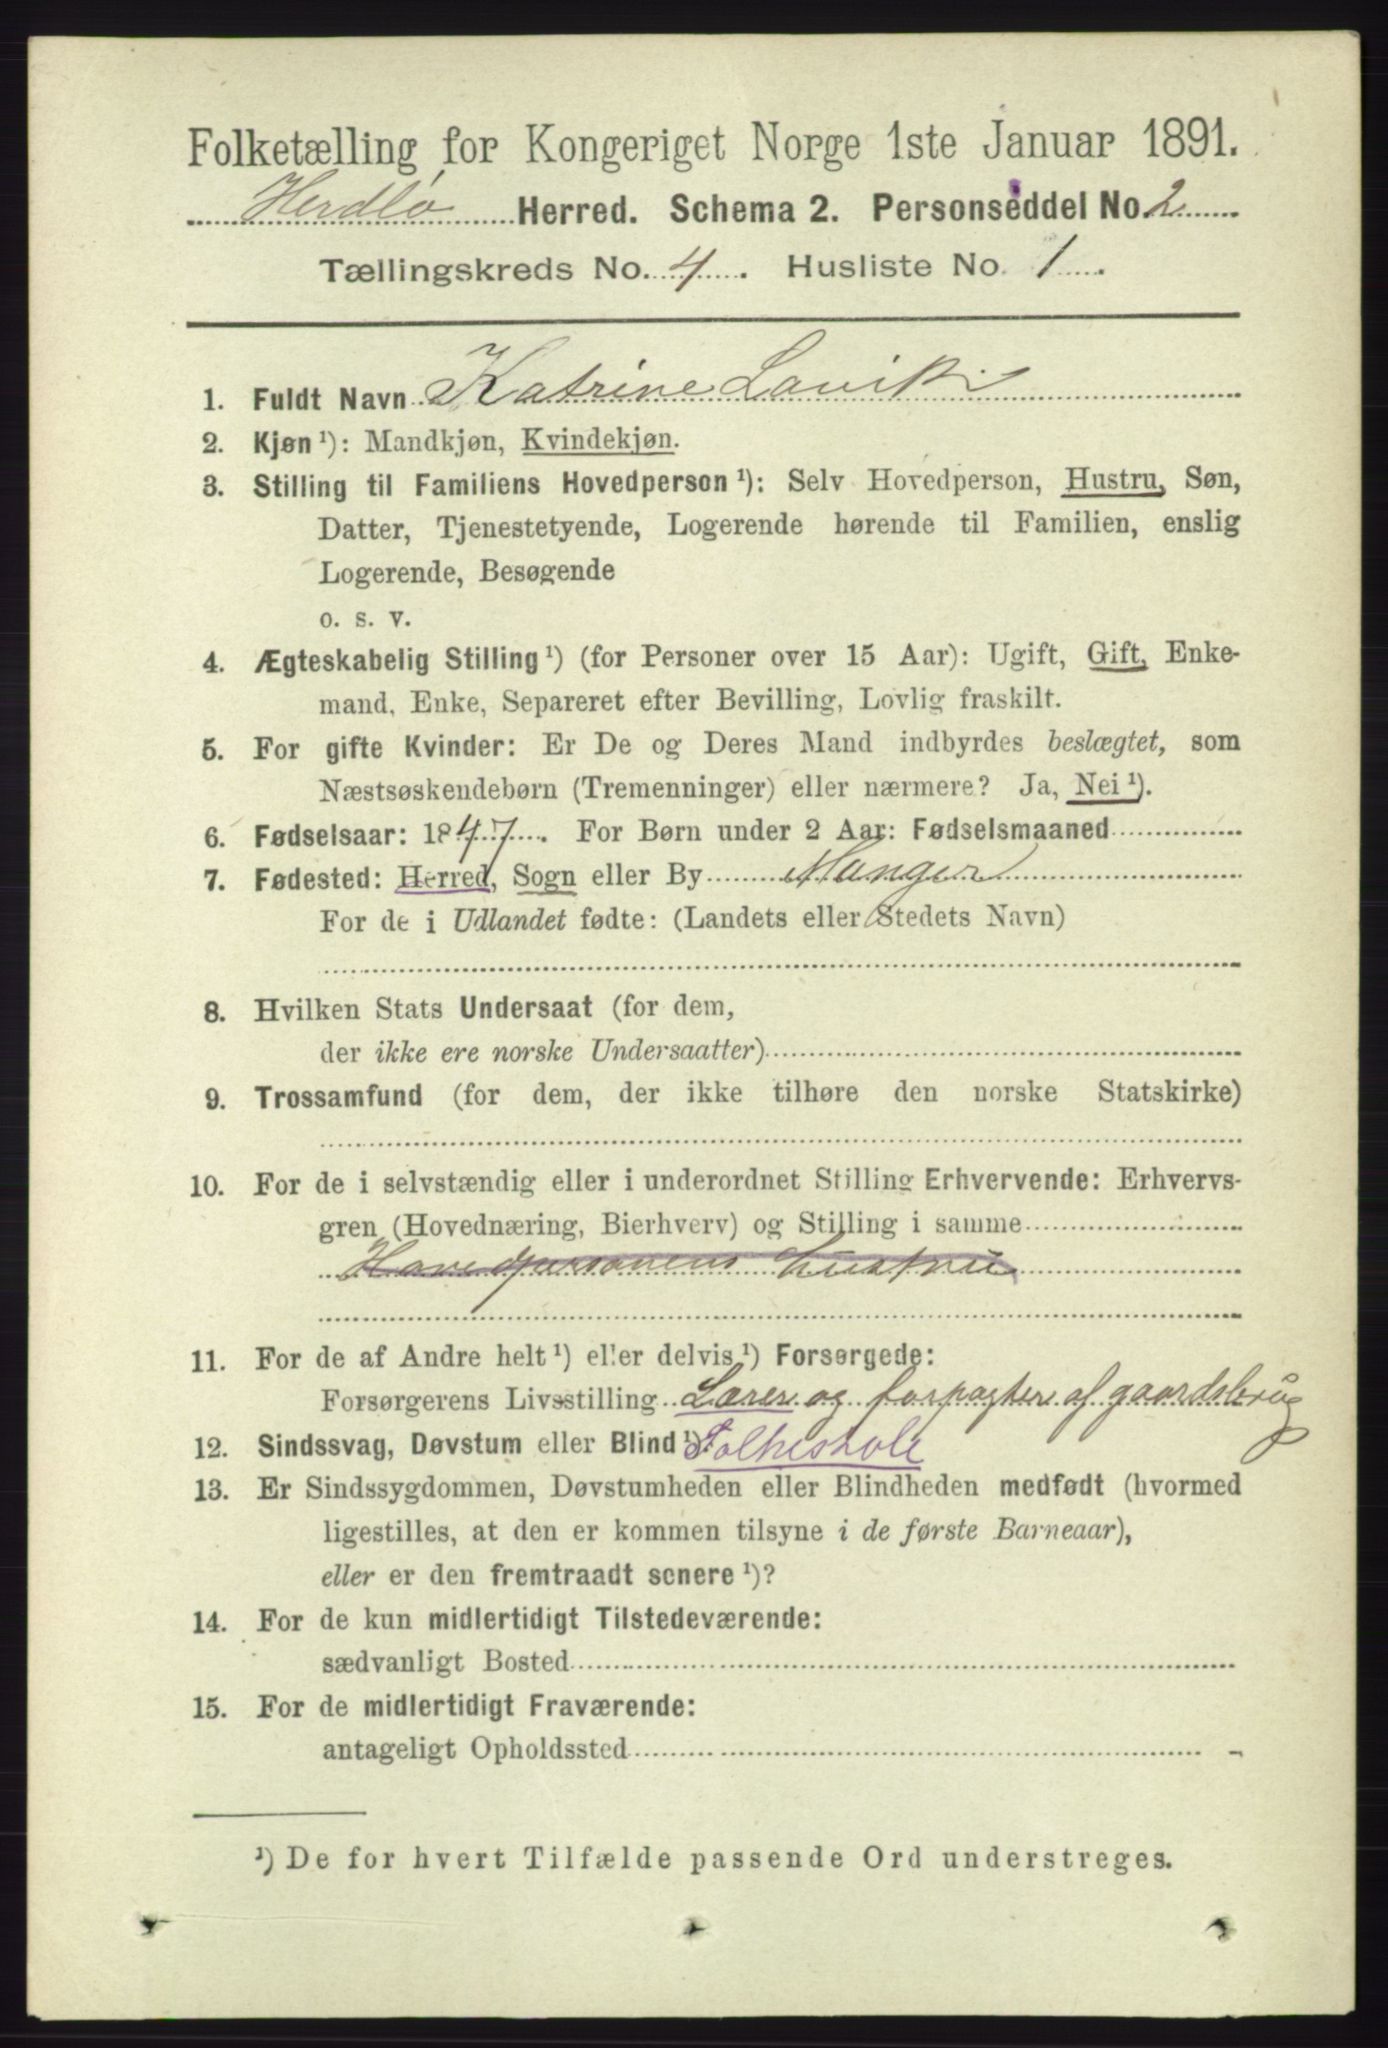 Folketælling for Kongeriget Norge 1ste Januar 1891.
Herdlø Herred. Schema 2. Personseddel No 2
Tællingskreds No. 4. Husliste No. 1.
1. Fuldt Navn Katrine Lavik
2. Kjøn ¹): Mandkjøn, Kvindekjøn.
3. Stilling til Familiens Hovedperson ¹): Selv Hovedperson, Hustru, Søn,
Datter, Tjenestetyende, Logerende hørende til Familien, enslig
Logerende, Besøgende
o. s. v.
4. Ægteskabelig Stilling ¹) (for Personer over 15 Aar): Ugift, Gift, Enke-
mand, Enke, Separeret efter Bevilling, Lovlig fraskilt.
5. For gifte Kvinder: Er De og Deres Mand indbyrdes beslægtet, som
Næstsøskendebørn (Tremenninger) eller nærmere? Ja, Nei ¹).
6. Fødselsaar: 1847. For Børn under 2 Aar: Fødselsmaaned
7. Fødested: Herred, Sogn eller By Manger
For de i Udlandet fødte: (Landets eller Stedets Navn)
8. Hvilken Stats Undersaat (for dem,
der ikke ere norske Undersaatter)
9. Trossamfund (for dem, der ikke tilhøre den norske Statskirke)
10. For de i selvstændig eller i underordnet Stilling Erhvervende: Erhvervs-
gren (Hovednæring, Bierhverv) og Stilling i samme
Hovedpersonens hustru
11. For de af Andre helt ¹) eller delvis ¹) Forsørgede:
Forsørgerens Livsstilling Lærer og forpagter af gaardsbrug
12. Sindssvag, Døvstum eller Blind ¹). Folkeskole
13. Er Sindssygdommen, Døvstumheden eller Blindheden medfødt (hvormed
ligestilles, at den er kommen tilsyne i de første Barneaar),
eller er den fremtraadt senere ¹)?
14. For de kun midlertidigt Tilstedeværende:
sædvanligt Bosted
15. For de midlertidigt Fraværende:
antageligt Opholdssted
¹) De for hvert Tilfælde passende Ord understreges.